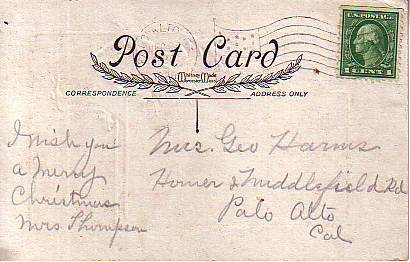 PALO ALTO
U.S. POSTAGE
1 CENT 1
Post Card
Whitney Made
Worcester, Mass
CORRESPONDENCE
ADDRESS ONLY
I wish you
a Merry
Christmas
Mrs Thompson
Mrs. Geo Harms
Homer & Middlefield Rd
Palo Alto
Cal